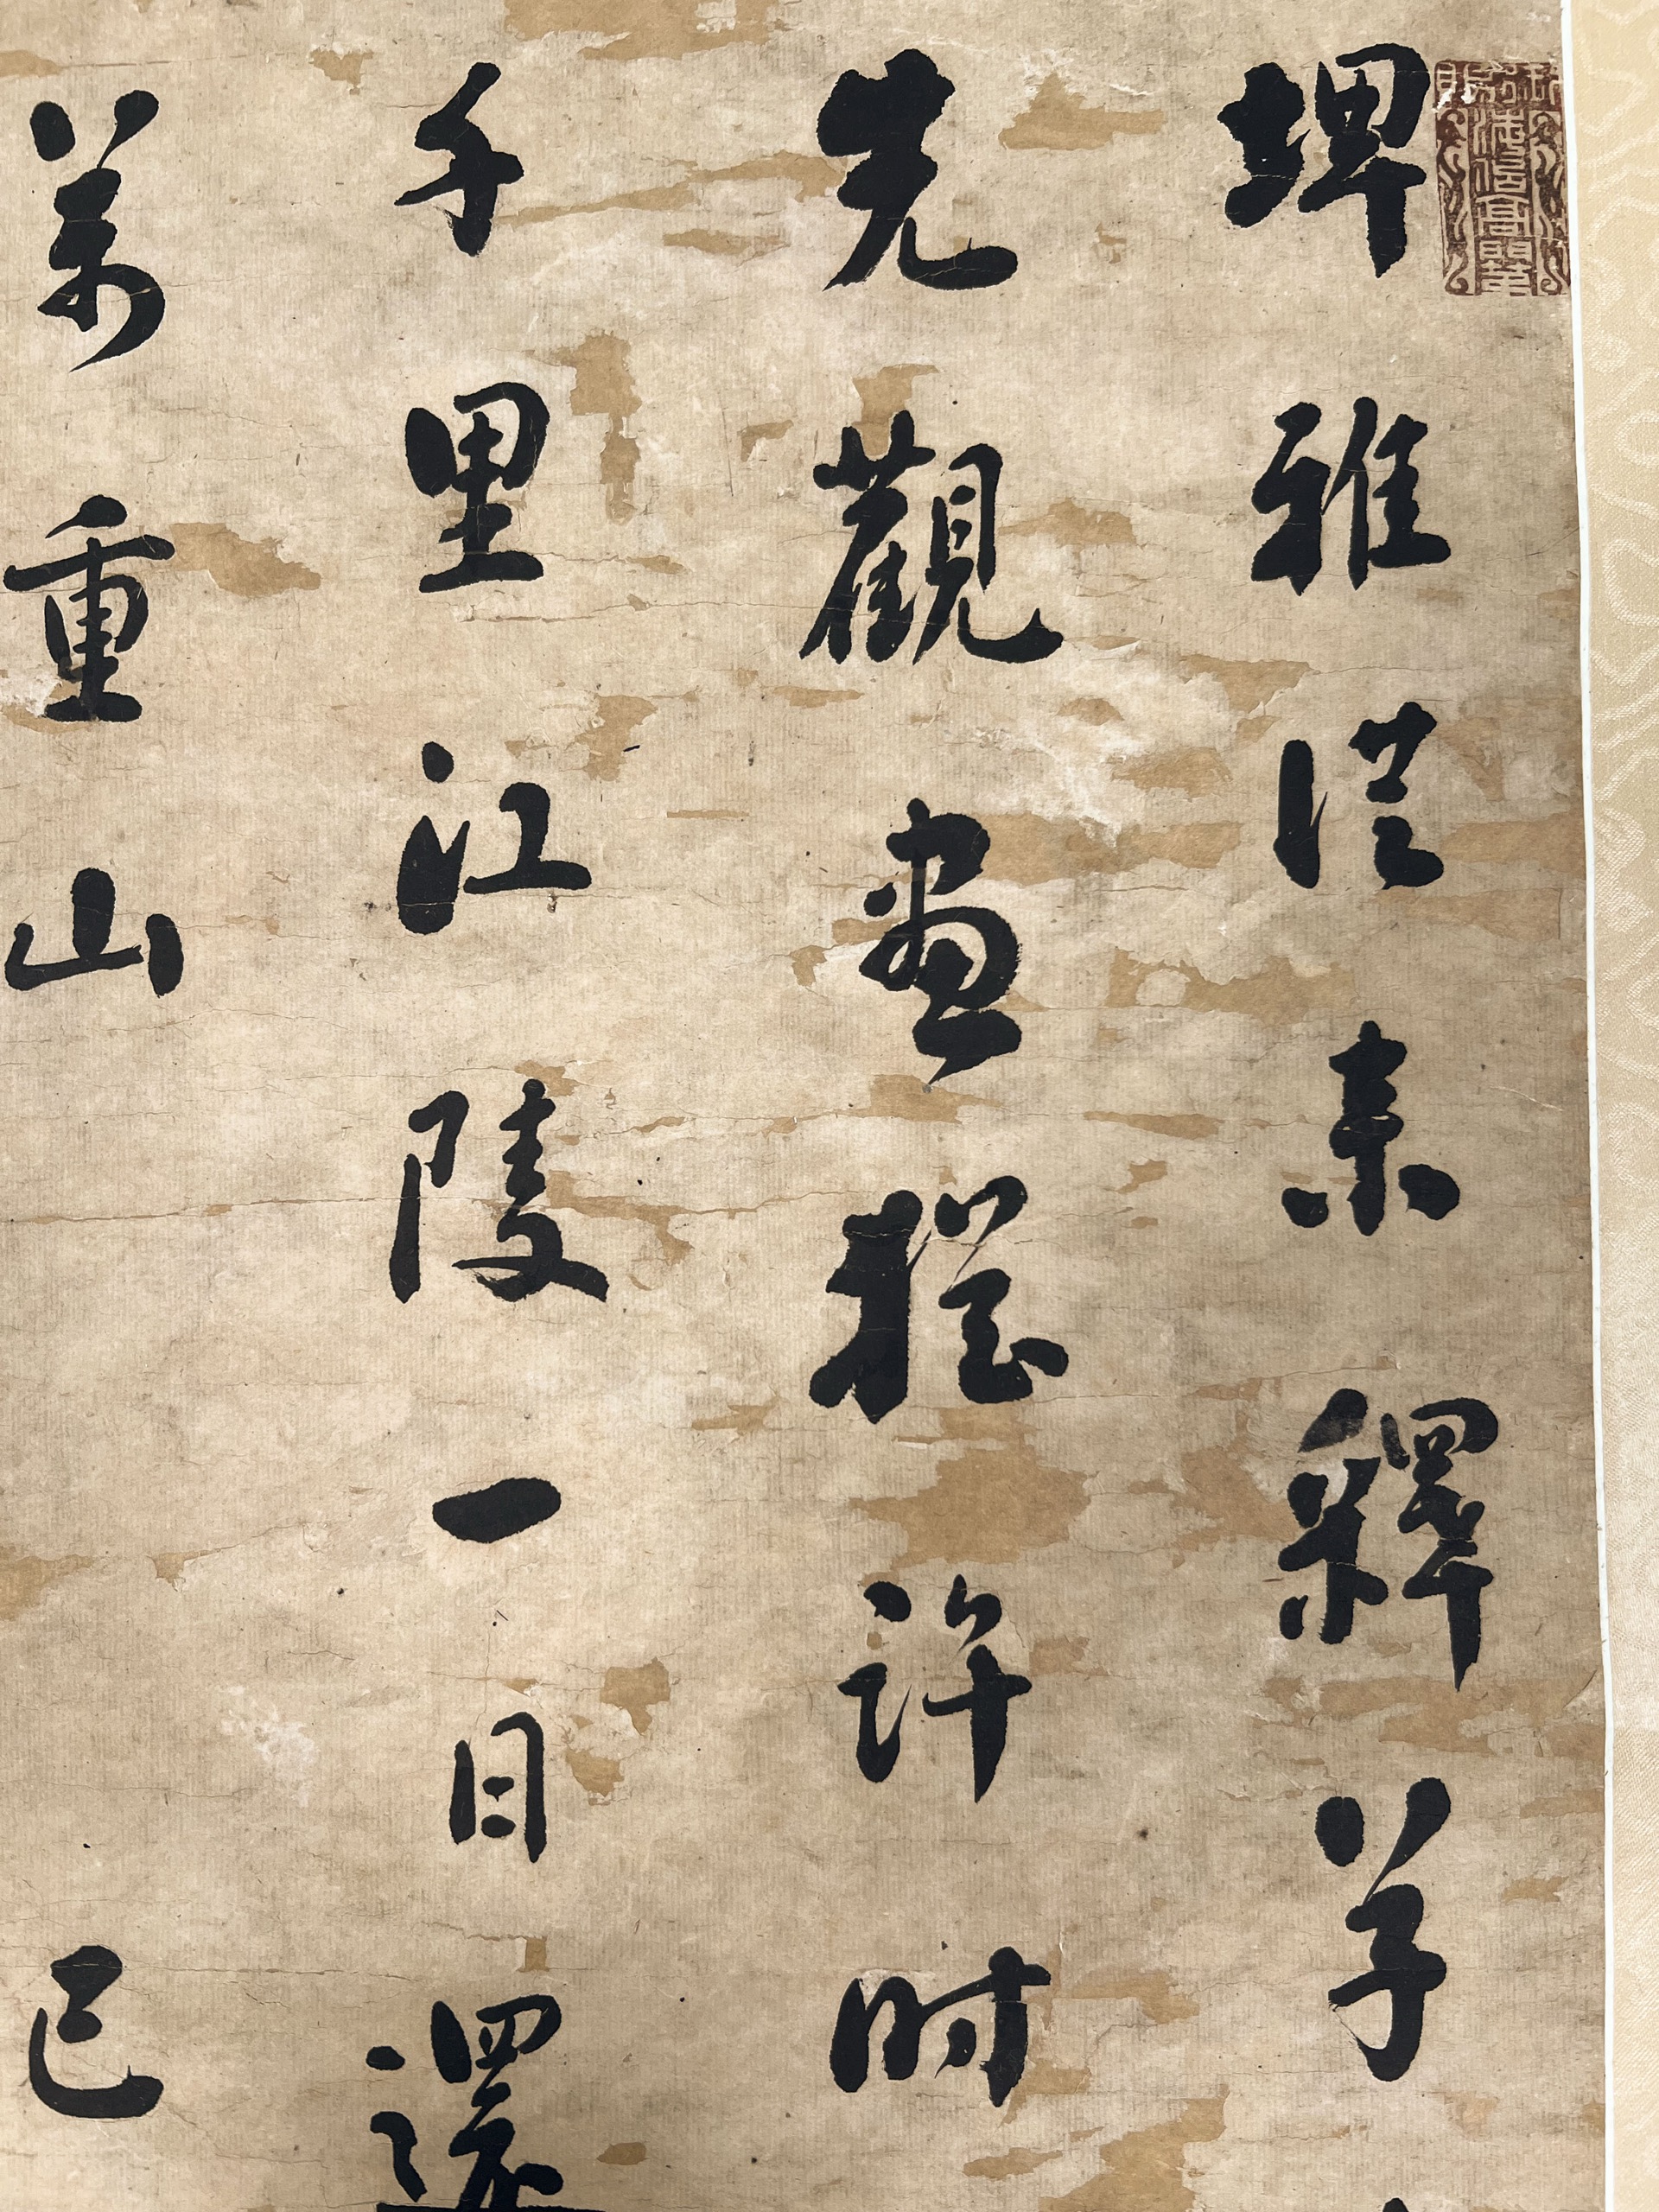 埤雅從來釋草
先觀畫猶許時
千里江陵一日還
萬重山 已